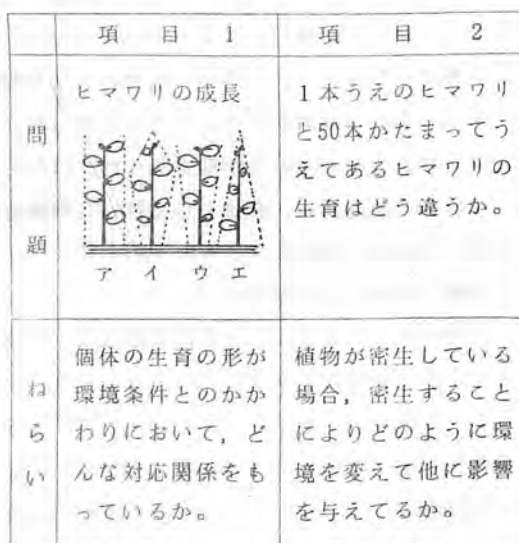 項目1
項目2
問題
ヒマワリの成長
ア イ ウ エ
1本うえのヒマワリ
と50本かたまってう
えてあるヒマワリの
生育はどう違うか。
ねらい
個体の生育の形が
環境条件とのかか
わりにおいて，ど
んな対応関係をも
っているか。
植物が密生している
場合，密生すること
によりどのように環
境を変えて他に影響
を与えてるか。